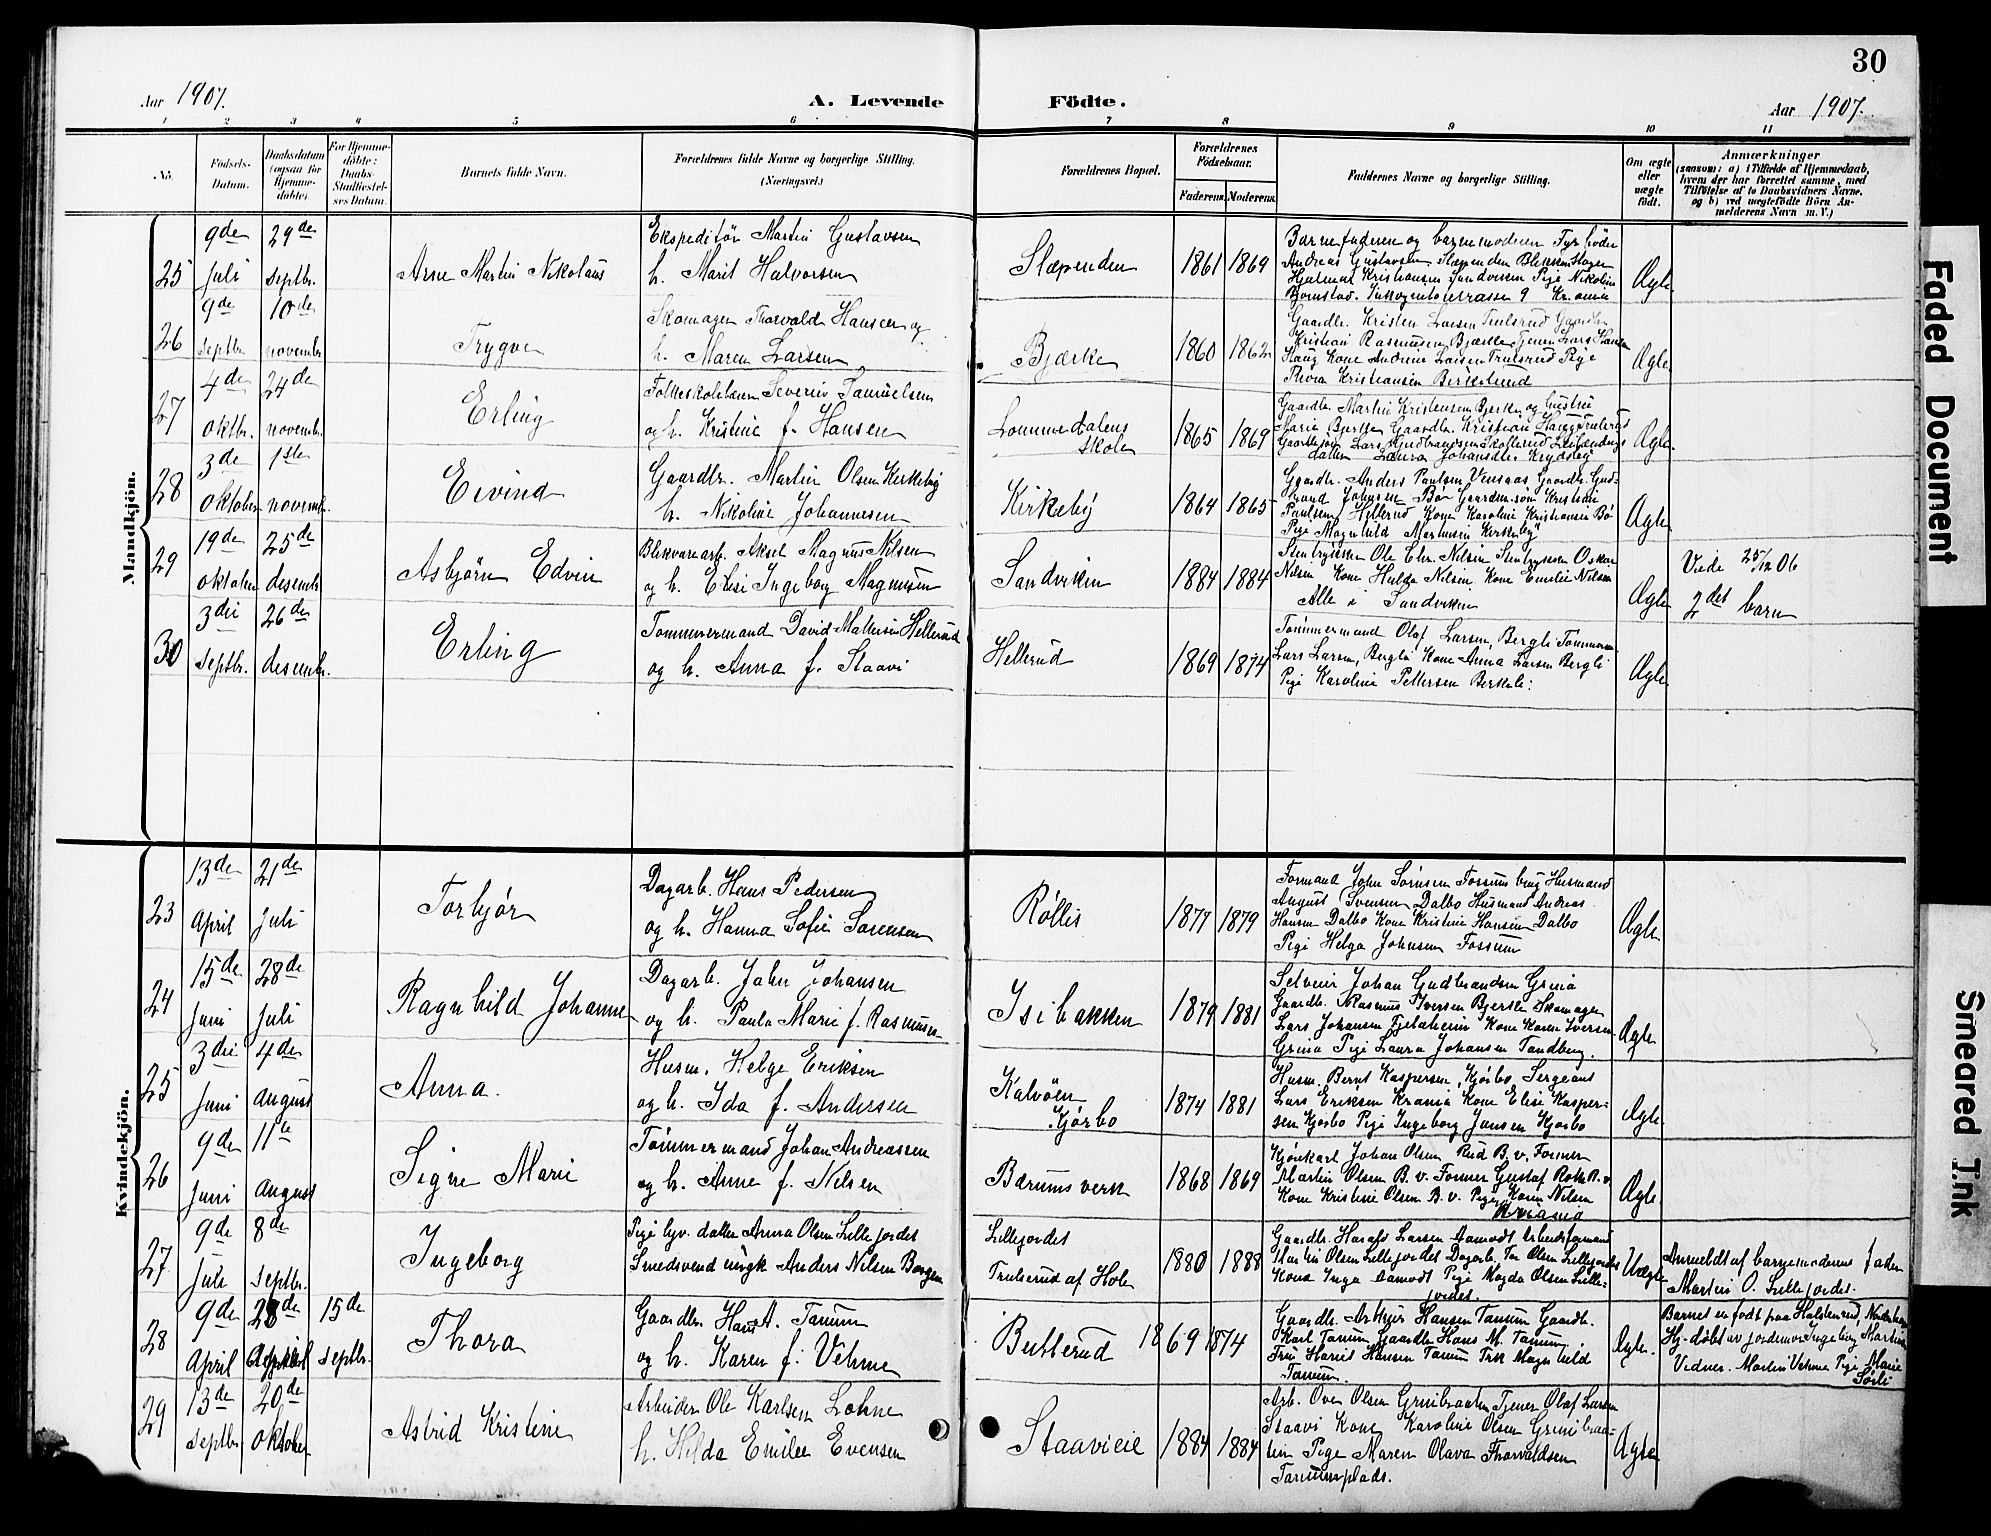 30
Aar 1907.
A. Levende
Födte.
Aar 1907.
1 2 3 4 5 6 7 8 9 10 11
No.
Födsels-
Datum.
Daabsdatum
(ogsaa for
Hjemme-
döbte).
For Hjemme-
döbte:
Daabs-
Stadfæstel-
ses Datum.
Barnets fulde Navn.
Forældrenes fulde Navne og borgerlige Stilling.
(Næringsvei.)
Forældrenes Bopæl.
Forældrenes
Födselsaar.
Faderens. Moderens.
Faddernes Navne og borgerlige Stilling.
Om ægte
eller
uægte
födt.
Anmærkninger
(saasom: a) i Tilfælde af Hjemmedaab,
hvem der har forrettet samme, med
Tilföielse af to Daabsvidners Navne,
og b) ved uægtefödte Börn An-
melderens Navn m. V.)
Mandkjön.
25
9de
Juli
29de
Septbr.
Arne Martin Nikolaus
Ekspeditör Martin Gustavsen
h. Marit Halvorsen
Slæpenden
1861 1869
Barnefaderen og barnemoderen Fyrböder
Andreas Gustavsen Slæpenden Blikkenslager
Hjalmar Kristiansen Sandviken Pige Nikoline
Ægte
26
9de
Septbr.
10de
novembr.
Trygve
Skomager Thorvald Hansen og
h. Maren Larsen
Bjærke
1860 1862
Gaardbr. Kristen Larsen Trulsrud Gaardbr.
Kristian Rasmussen Bjærke Tjener Lars Hansen
Haug Kone Andrine Larsen Trulsrud Pige
Thora Kristiansen
Ægte
27
4de
Oktbr.
24de
novembr.
Erling
Folkeskolelærer Severin Samuelsen
og h. Kristine f. Hansen
Lommedalens
skole
1865 1869
Gaardbr. Martin Kristensen Bjerke og hustru
Marie Bjerke Gaardbr. Kristian
Gaardbrsön Lars Gudbrandsen Skollerud
datter Laura Johansdtr. Krydsby
Ægte
28
3de
Oktober
1ste
novembr.
Eivind
Gaardbr. Martin Olsen Kirkeby
h. Nikoline Johannesen
Kirkeby
1864 1865
Gaardbr. Anders Paulsen Vensaas Gaardbr. Gud-
brand Johnsen Bö Gaardm.sön Kristian
Paulsen Hellerud Kone Karoline Kristiansen Bö
Pige Magnhild Martinsen Kirkeby
Ægte
29
19de
Oktober
25de
desembr.
Asbjörn Edvin
Blikvarearb. Aksel Magnus Nilsen
og h. Elise Ingeborg Magnusen
Sandviken
1884 1884
Stenhugger Ole Chr. Nilsen Stenhugger Oskar
Nilsen Kone Hulda Nilsen Kone Emilie Nilsen
Alle i Sandviken
Ægte
Viede 25/12 06
2det barn
30
3die
Septbr.
26de
desembr.
Erling
Tømmermand David Mathisen Hellerud
og h. Anna f. Staavi
Hellerud
1869 1874
Tømmermand Olaf Larsen, Bergli Tømmerm.
Lars Larsen, Bergli Kone Anna Larsen Bergli
Pige Karoline Pettersen Berkeli.
Ægte
Kvindekjön.
23
13de
April
21de
Juli
Torbjør
Dagarb. Hans Pedersen
og h. Hanna Sofie Sørensen
Røllis
1877 1879
Formand John Sørnsen Fossum brug Husmand
August Svensen Dalbo Husmand Andreas
Hansen Dalbo Kone Kristine Hansen Dalbo
Pige Helga Johnsen Fossum
Ægte
24
15de
Juni
28de
Juli
Ragnhild Johanne
Dagarb. John Johansen
og h. Paula Marie f. Rasmusen
Isibakken
1879 1881
Selveier Johan Gudbrandsen Grinia
Gaardbr. Rasmus Iversen Bjerke Skomager
Lars Johansen Fjelaheim Kone Karen Iversen
Grina Pige Laura Johansen Tandberg.
Ægte
25
3die
Juni
4de
August
Anna.
Husm. Helge Eriksen
og h. Ida f. Andersen
Kalvöen
Kjørbo
1874 1881
Husm. Bernt Kaspersen, Kjørbo Sergeant
Lars Eriksen Krania Kone Elise Kasper-
sen Kjørbo Pige Ingeborg Jansen Kjørbo
Ægte
26
9de
Juni
11te
August
Signe Marie
Tømmermand Johan Andreassen
og h. Anne f. Nilsen
Bærums verk
1868 1869
Kjørekarl Johan Olsen Rud B.v. Former
Martin Olsen B.v. Former Gustaf Roth B.v.
Kone Kristine Olsen B.v. Pige Karen Nilsen
Krania
Ægte
27
9de
Juli
8de
Septbr.
Ingeborg
Pige hjv. datter Anna Olsen Lillejordet
Smedsvend ungk Anders Nilsen Borgen
Lillejordet
Trulserud af Hole
1880 1888
Gaardbr. Harald Larsen Aamodt Arbeidsformand
Martin Olsen Lillejordet Dagarb. Tor Olsen Lillejordet
Kone Inga Aamodt Pige Magda Olsen Lille-
jordet.
Uægte
Anmeldt af barnemoderens fader
Martin O. Lillejordet.
28
9de
April
28de
April
15de
Septbr.
Thora
Gaardbr. Hans A. Tanum
og h. Karen f. Vehme
Butterud
1869 1874
Gaardbr. Asbjør Hansen Tanum Gaardbr.
Karl Tanum Gaardbr. Hans M. Tanum
Fru Harriet Hansen Tanum Frk Magnhild
Tanum.
Ægte.
Barnet er født paa
Hj.döbt av jordemor Ingeborg Martinsen
Vidner. Martin Vehme Pige Marie
Sörli
29
13de
Septbr.
20de
Oktober
Astrid Kristine
Arbeider Ole Karlsen Lohne
h. Hilda Emilie Evensen
Staavieie
1884 1884
Arb. Oven Olsen Grinibraaten Tjener Olaf Larsen
Staavi Kone Karoline Olsen Grinibraa-
ten Pige Maren Olava Thorvaldsen
Tanumsplads.
Ægte
Faded Document
Smeared Ink